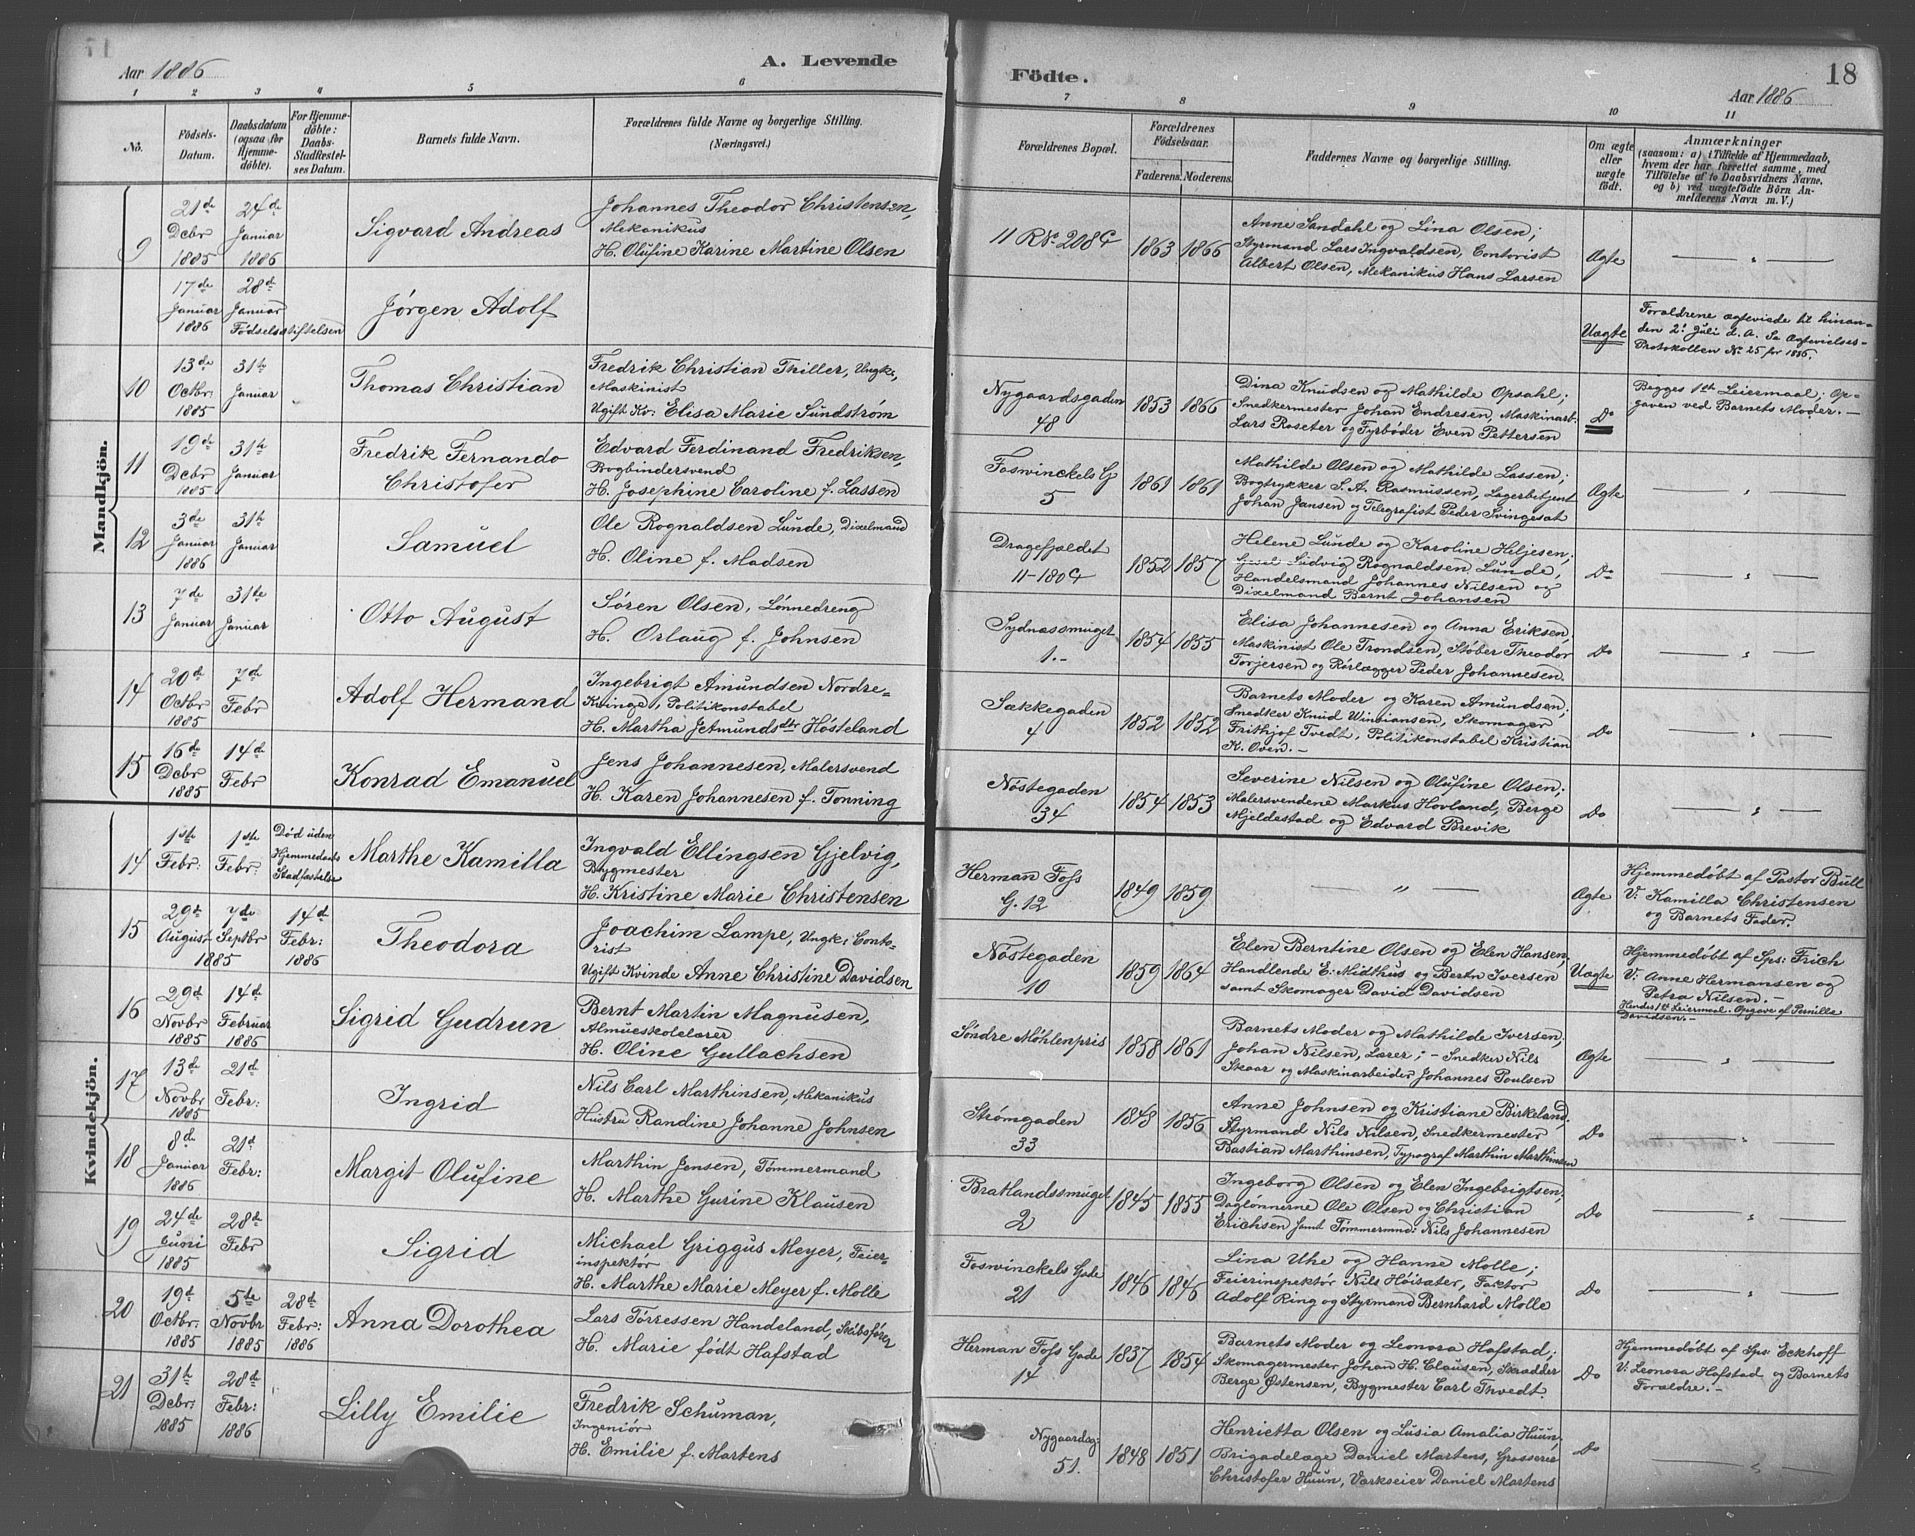 Aar 1886
A. Levende
Födte.
18
Aar 1886
1 2 3 4 5 6 7 8 9 10 11
No.
Födsels-Datum.
Daabsdatum (ogsaa for Hjemmedöbte).
For Hjemmedöbte: Daabs-Stadfæstelses Datum.
Barnets fulde Navn.
Forældrenes fulde Navne og borgerlige Stilling.
(Næringsvei.)
Forældrenes Bopæl.
Forældrenes Födselsaar.
Faderens. Moderens.
Faddernes Navne og borgerlige Stilling.
Om ægte eller uægte födt.
Anmærkninger
(saasom: a) i Tilfælde af Hjemmedaab, hvem der har forrettet samme, med Tilföielse af to Daabsvidners Navne, og b) ved uægtefödte Börn Anmelderens Navn m. V.)
Mandkjön.
9
21de Decbr 1885
24de Januar 1886
Sigvard Andreas
Johannes Theodor Christensen,
Mekanikus
H. Olufine Karine Martine Olsen
11 R No 208 C
1863 1866
Anne Sandahl og Lina Olsen;
Styrmand Lars Ingvaldsen, Contorist
Albert Olsen, Mekanikus Hans Larsen
Ægte
— " —
17de Januar 1886
28de Januar
Fødselsstiftelsen
Jørgen Adolf
Uægte
Forældrene ægteviede til hinan-
den 2. Juli d. A. Se Ægtevielses-
Protokollen No 25 for 1886.
10
13de Octbr. 1885
31te Januar
Thomas Christian
Fredrik Christian Thiller, Ungk.,
Maskinist
Ugift Kv: Elisa Marie Sundstrøm
Nygaardsgaden
48
1853 1866
Dina Knudsen og Mathilde Opsahl;
Snedkermester Johan Endresen, Maskinarb.
Lars Roseter og Fyrbøder Even Pettersen
Do
Begges 1ste Leiermaal; Op-
gaven ved Barnets Moder. —
11
19de Decbr 1885
31te Januar
Fredrik Fernando
Christofer
Edvard Ferdinand Fredriksen,
Bogbindersvend
H. Josephine Caroline f. Lassen
Foswinckels G
5
1861 1861
Mathilde Olsen og Mathilde Lassen;
Bogtrykker S. A. Rasmussen, Lagerbetjent
Johan Jansen og Telegrafist Peder Svingesat
Ægte
— " —
12
3de Januar 1886
31te Januar
Samuel
Ole Rognaldsen Lunde, Dixelmand
H. Oline f. Madsen
Dragefjældet
11-180 C
1852 1857
Helene Lunde og Karoline Heljesen;
Ludvig Rognaldsen Lunde,
Handelsmand Johannes Nilsen og
Dixelmand Bernt Johansen
Do
— " —
13
7de Januar
31te Januar
Otto August
Søren Olsen, Lønnedreng
H. Orlaug f. Johnsen
Sydnæssmuget
1.-
1854 1855
Elisa Johannesen og Anna Eriksen,
Maskinist Ole Trondsen, Støber Theodor
Torjersen og Rørlægger Peder Johannesen.
Do
— " —
14
20de Octbr 1885
7de Febr
Adolf Hermand
Ingebrigt Amundsen Nordre-
Kvinge, Politikonstabel
H. Martha Jetmundsdtr Høsteland
Sækkegaden
4
1852 1852
Barnets Moder og Karen Amundsen;
Snedker Knud Winsiansen, Skomager
Frithjof Tvedt, Politikonstabel Kristian
K. Oven. —
Do
— " —
15
16de Decbr 1885
14de Febr
Konrad Emanuel
Jens Johannesen, Malersvend
H. Karen Johannesen f. Tonning
Nöstegaden
34
1854 1853
Severine Nilsen og Olufine Olsen;
Malersvendene Markus Hovland, Berge
Mjeldestad og Edvard Brevik
Do
— " —
Kvindekjön.
14
1ste Febr:
1ste Febr:
Død uden
Hjemmedaabs
Stadfæstelse
Marthe Kamilla
Ingvald Ellingsen Gjelvig,
Bygmester
H. Kristine Marie Christensen
Herman Foss
G. 12
1849 1859
— " —
Ægte
Hjemmedøbt af Pastor Bull
V: Kamilla Christensen
og Barnets Fader.
15
29de August
7de Septbr
1885
14de Febr: 1886
Theodora
Joachim Lampe, Ungk: Conto-
rist
Ugift Kvinde Anne Christine Davidsen
Nöstegaden
10
1859 1864
Elen Berntine Olsen og Elen Hansen
Handlende E. Midthus og Bertn Iversen
samt Skomager David Davidsen
Uægte
Hjemmedøbt af Sps: Frich
V: Anne Hermansen og
Petra Nilsen. —
Hendes 1ste Leiermaal. Opgave af Pernille
Davidsen. —
16
29de Novbr 1885
14de Februar 1886
Sigrid Gudrun
Bernt Martin Magnusen,
Almueskolelærer
H. Oline Gullachsen
Søndre Møhlenpris
1858 1861
Barnets Moder og Mathilde Iversen,
Johan Nilsen, Lærer; — Snedker Nils
Skaar og Maskinarbeider Johannes Poulsen
Ægte
— " —
17
13de Novbr 1885
21de Febr:
Ingrid
Nils Carl Marthinsen, Mekanikus
Hustru Randine Johanne Johnsen
Strømgaden
33
1848 1856
Anne Johnsen og Kristiane Birkeland,
Styrmand Nils Nilsen, Snedkermester
Bastian Marthinsen, Typograf Marthin Marthinsen
Do
— " —
18
8de Januar 1886
21d Febr:
Margit Olufine
Marthin Jensen, Tømmermand
H. Marthe Gurine Klausen
Bratlandssmuget
2
1845 1855
Ingeborg Olsen og Elen Ingebrigtsen,
Dagløunerne Ole Olsen og Christian
Erichsen samt Tømmermd: Nils Johannesen
Do
— " —
19
24de Juni 1885
28de Febr
Sigrid
Michael Griggus Meyer, Feier-
inspektør
H. Marthe Marie Meyer f. Molle
Foswinckels Gade
21
1846 1846
Lina Uhe og Hanne Molle;
Feierinspektør Nils Høisæter, Faktor
Adolf Ring og Styrmand Bernhard Molle
Do
— " —
20
19d Octbr. 1885
5te Novbr 1885
28de Febr: 1886
Anna Dorothea
Lars Tørressen Handeland, Skibsfører
H. Marie født Hafstad
Herman Foss Gade
14
1837 1854
Barnets Moder og Leonora Hafstad;
Skomagermester Johan H. Clausen, Skrædder
Berge Østensen, Bygmester Carl Thvedt.
Do
Hjemmedøbt af Sps: Eckhoff
V: Leonora Hafstad og Barnets
Forældre. —
21
31te Decbr: 1885
28de Febr: 1886
Lilly Emilie
Fredrik Schuman,
Ingeniør
H. Emilie f. Martens
Nygaardsg:
51.
1848 1851
Henrietta Olsen og Lusia Amalia Huun,
Brigadelæge Daniel Martens, Grosserer
Christofer Huun, Værkseier Daniel Martens
Do
— " —